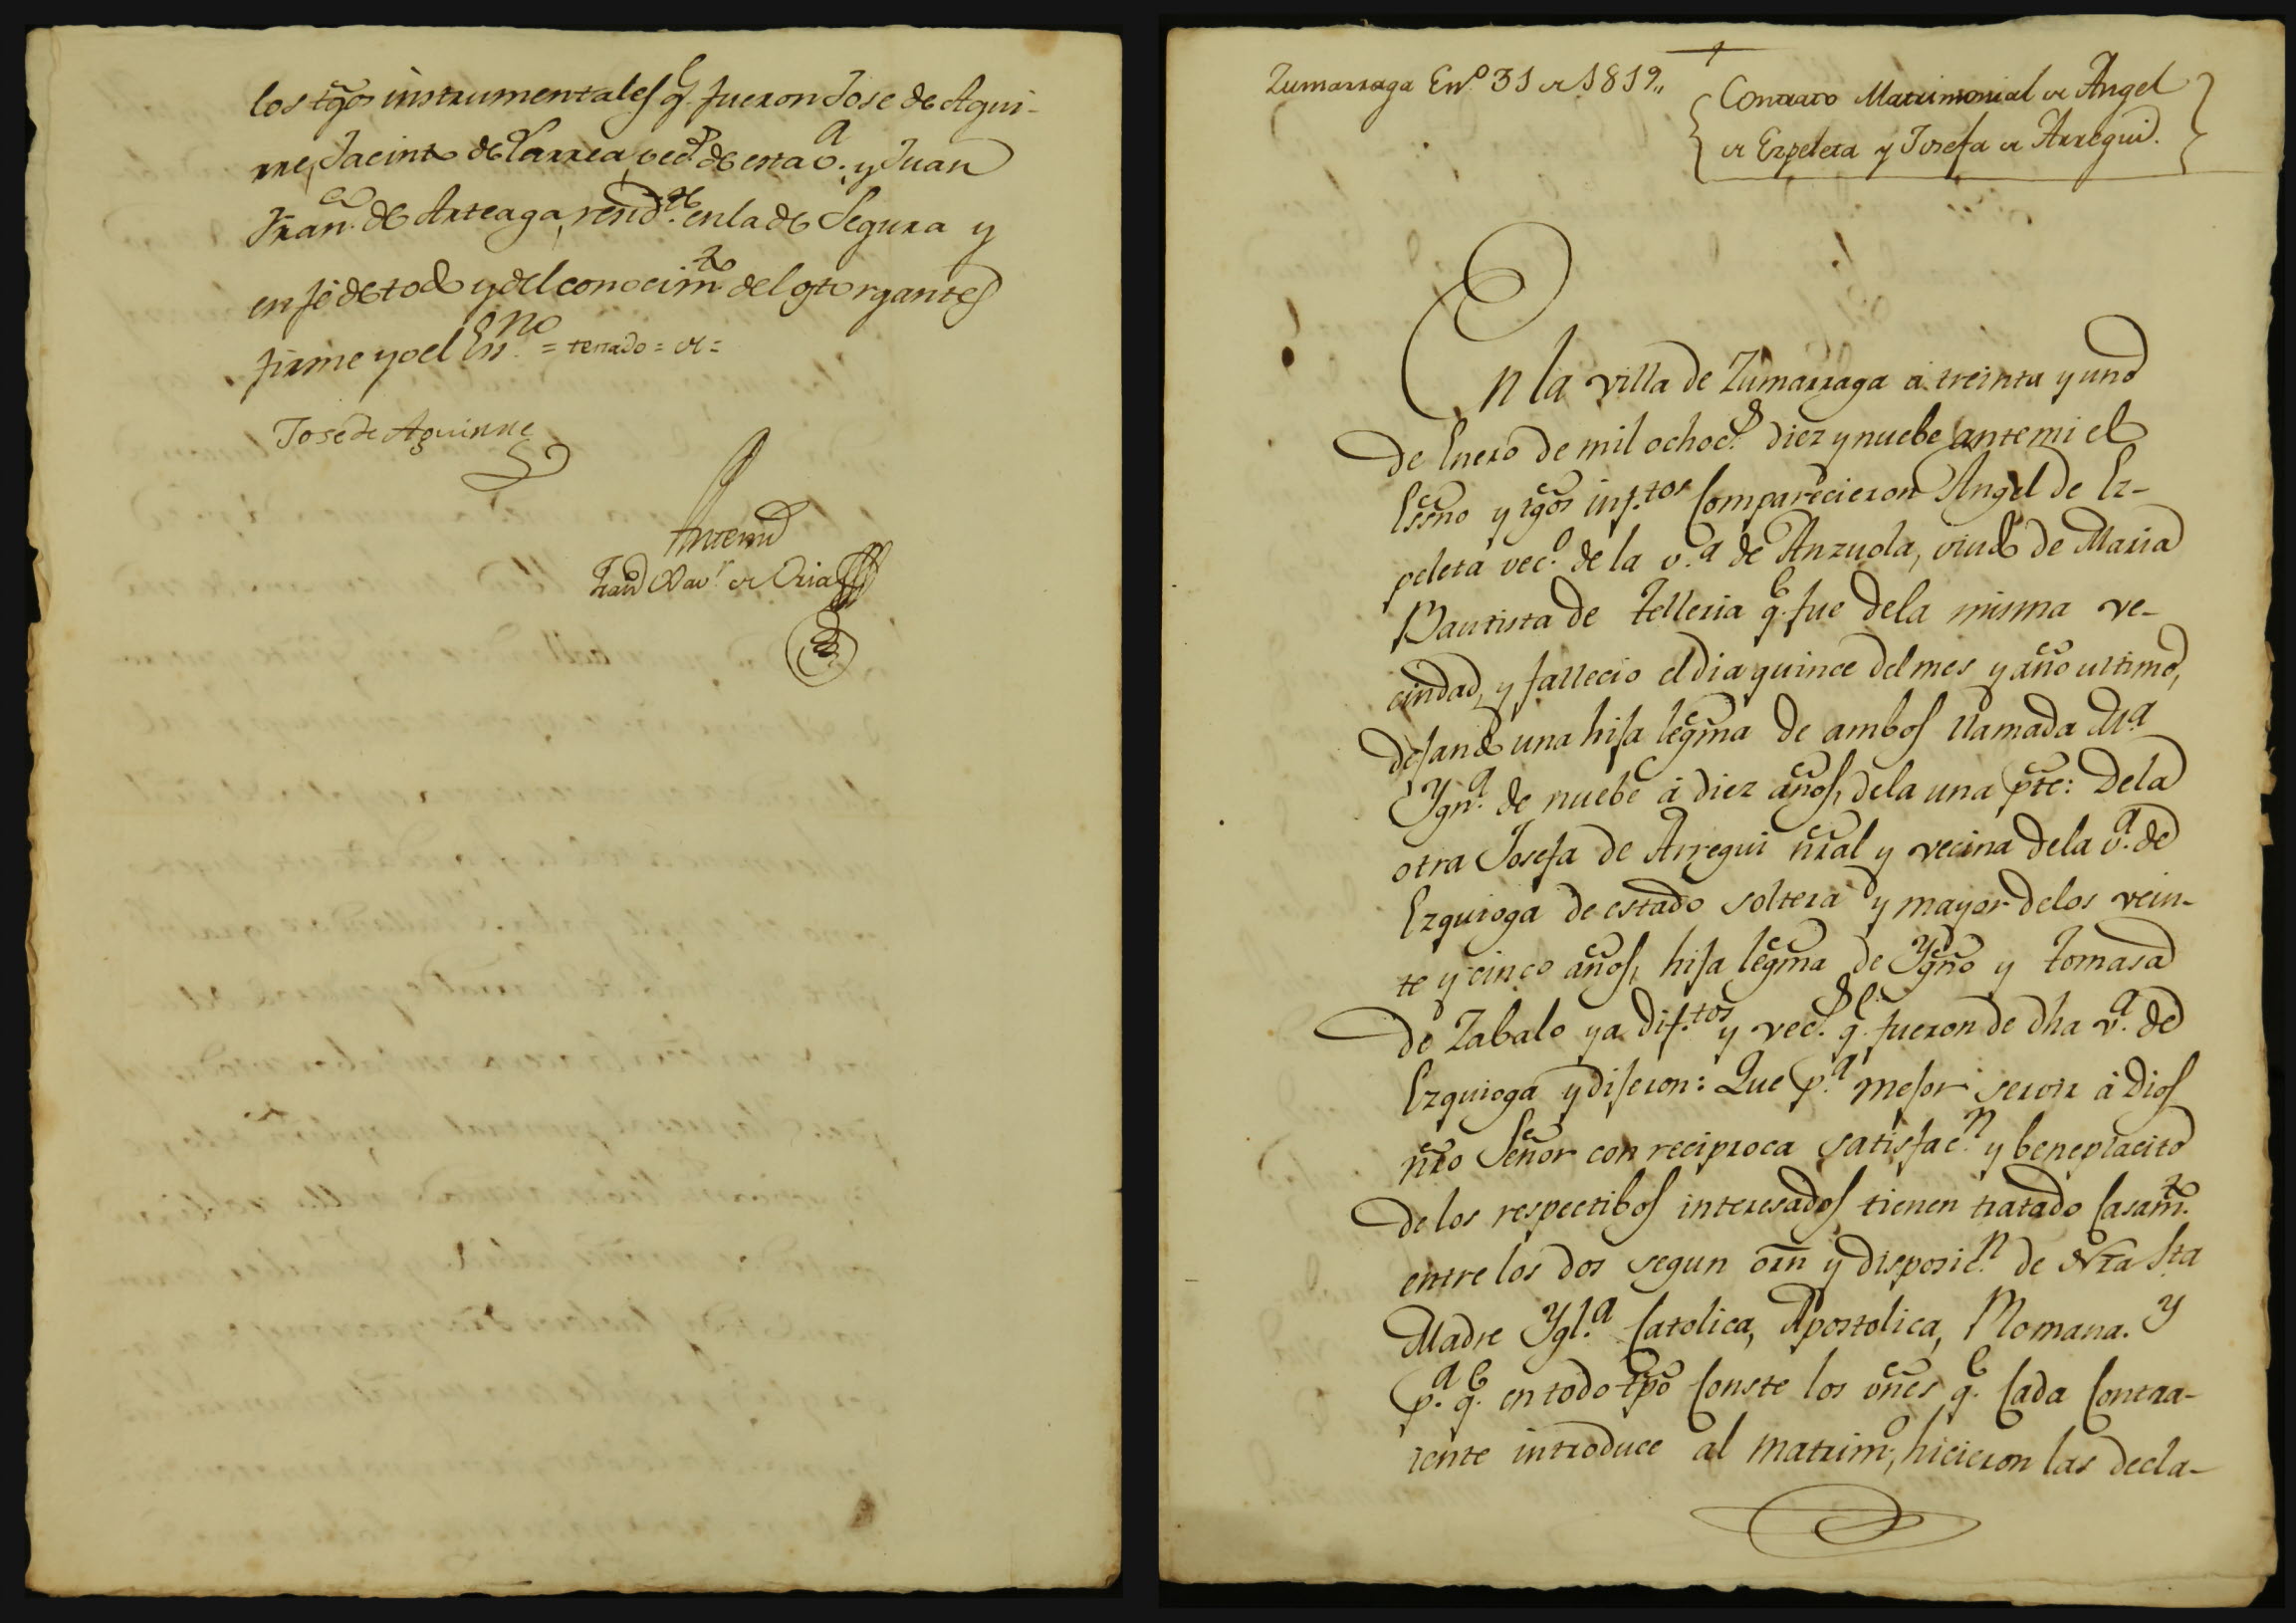 los tgõs instrumentales q.e fueron Jose de Aguir-
rre, Jacinto de Larrea, vec.s de esta v.a y Juan
Fran.co de Arteaga, resid.te en la de Segura y
en fé de todo y del conocim.to del otorgante
firme yo el Ess.no = testado = de =
Jose de Aguirre
Ante mi
Fran.co Xav.r de Oria
Zumarraga En.o 31 de 1819,,
Contrato Matrimonial de Angel
de Ezpeleta y Josefa de Arregui.
En la villa de Zumarraga á treinta y uno
de Enero de mil ochoc.s diez y nuebe ante mi el
Essno y tgõs inf.tos Comparecieron Angel de Ez-
peleta vec.o de la v.a de Anzuola, viudo de Maria
Bautista de Telleria q.e fue de la misma ve-
cindad, y fallecio el dia quince del mes y año ultimo,
dejando una hija legma de ambos llamada M.a
Ygn.a de nuebe á diez años, de la una pte: De la
otra Josefa de Arregui nral y vecina de la v.a de
Ezquioga de estado soltera y mayor de los vein-
te y cinco años, hija legma de Ygno y Tomasa
de Zabalo ya dif.tos y vec.s q.e fueron de dha v.a de
Ezquioga y dijeron: Que p.a mejor servir á Dios
nro Señor con reciproca satisfac.n y beneplacito
de los respectibos interesados tienen tratado Casam.to
entre los dos segun orn y disposic.n de Nra Sta
Madre Ygl.a Catolica, Apostolica, Romana. Y
p.a q.e en todo tpo Conste los vnes q.e Cada Contra-
iente introduce al matrim.o, hicieron las decla-